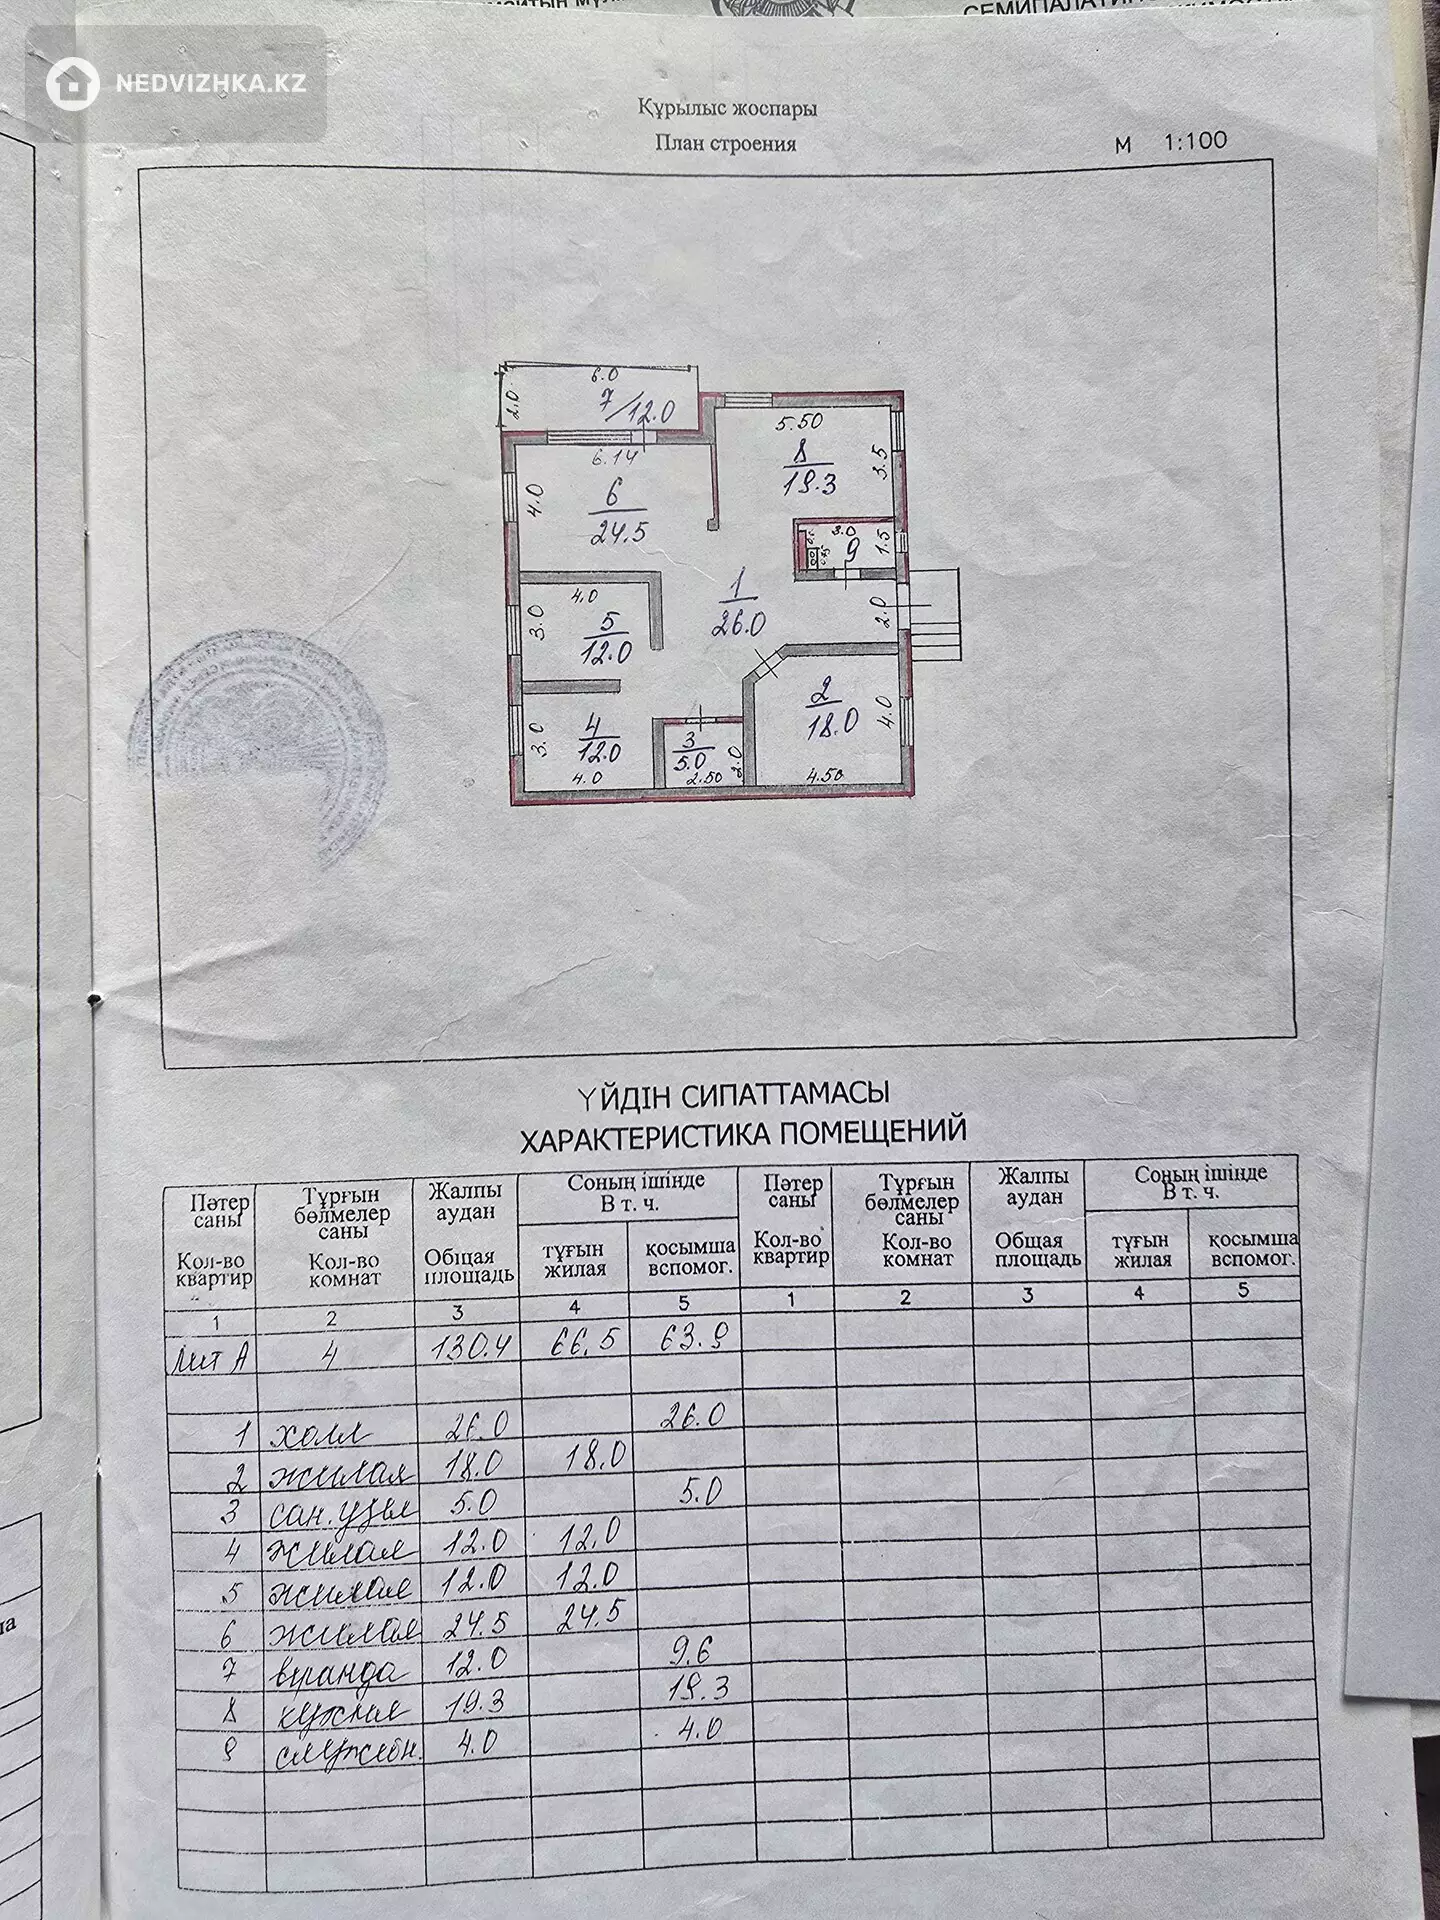 СЕМИПАЛАТИНС
NEDVIZHKA.KZ
Құрылыс жоспары
План строения
М 1:100
6.0
2.0
7/12.0
5.50
6.14
8
19.3
3.5
4.0
6
24.5
3.0
9
1.5
0.75
1
26.0
4.0
3.0
5
12.0
2.0
2
18.0
4.0
3.0
4
12.0
3
5.0
2.0
4.0
2.50
4.50
ҮЙДІН СИПАТТАМАСЫ
ХАРАКТЕРИСТИКА ПОМЕЩЕНИЙ
Пәтер саны Кол-во квартир Тұрғын бөлмелер саны Кол-во комнат Жалпы аудан Общая площадь Соның ішінде В т. ч. тұғын жилая қосымша вспомог. Пәтер саны Кол-во квартир Тұрғын бөлмелер саны Кол-во комнат Жалпы аудан Общая площадь Соның ішінде В т. ч. тұғын жилая қосымша вспомог.
1 2 3 4 5 1 2 3 4 5
Лит А 4 130.4 66.5 63.9
1 холл 26.0 26.0
2 жилая 18.0 18.0
3 сан. узел 5.0 5.0
4 жилая 12.0 12.0
5 жилая 12.0 12.0
6 жилая 24.5 24.5
7 веранда 12.0 9.6
8 кухня 19.3 19.3
9 служебн. 4.0 4.0